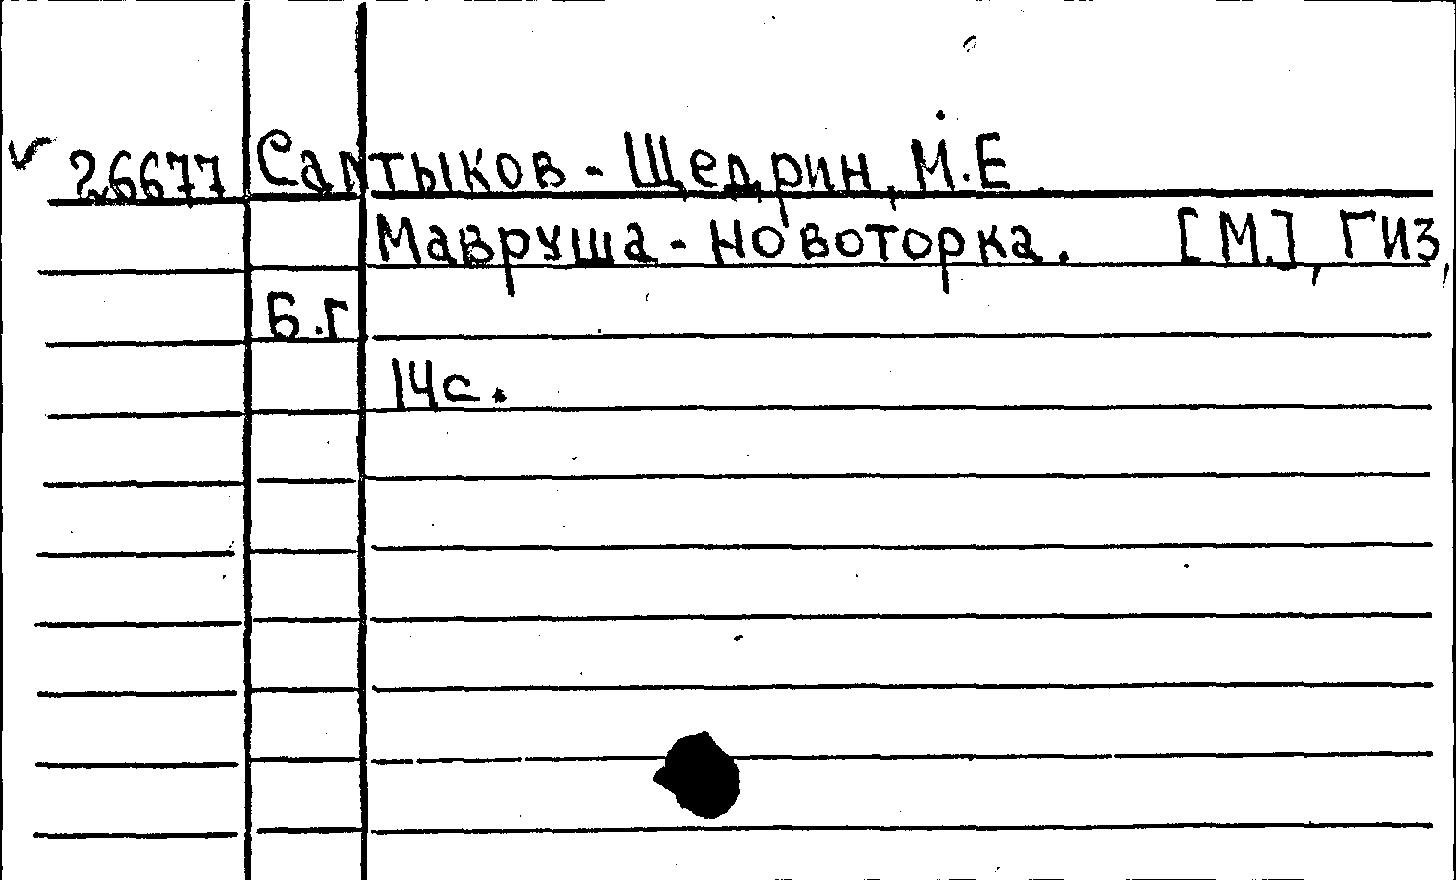 ✓ 26677 Салтыков - Щедрин, М.Е.
Мавруша - новоторка. [М.], ГИЗ,
Б.г
14с.